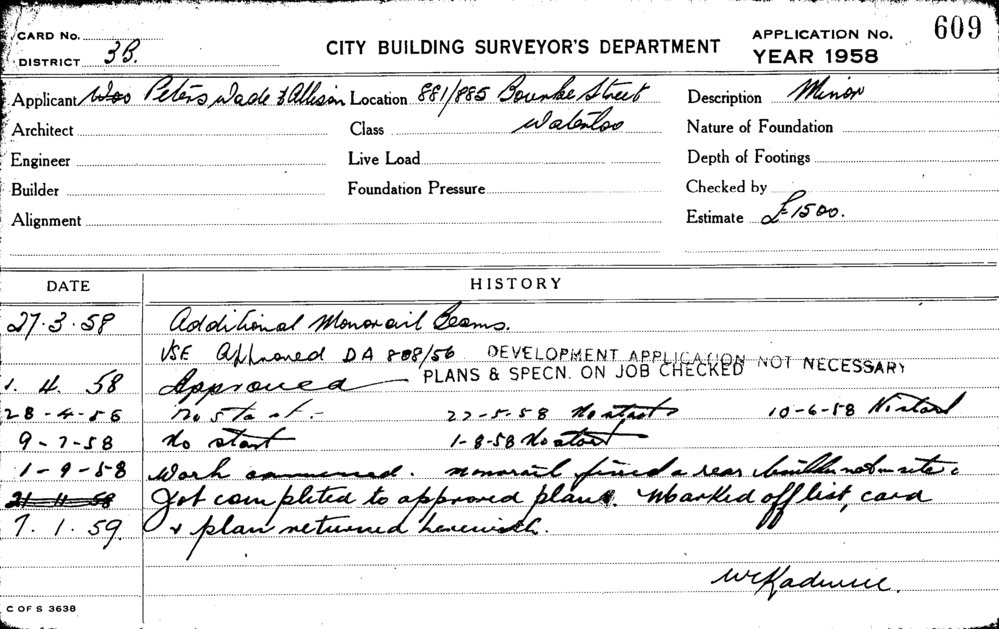 CARD No.
DISTRICT 3B.
CITY BUILDING SURVEYOR'S DEPARTMENT
APPLICATION No. 609
YEAR 1958
Applicant Peters Wade & Allison Location 881/885 Bourke Street Description Minor
Architect Class Waterloo Nature of Foundation
Engineer Live Load Depth of Footings
Builder Foundation Pressure Checked by
Alignment Estimate £1500.
DATE HISTORY
27.3.58 Additional Monorail Beams.
USE Approved DA 808/56 DEVELOPMENT APPLICATION NOT NECESSARY
1. 4. 58 Approved PLANS & SPECN. ON JOB CHECKED
28-4-58 No start.- 22-5-58 No start 10-6-58 No start
9-7-58 No start 1-8-58 No start
1-9-58 Work commenced. Monorail fixed rear builder not on site.
21 11 58 Job completed to approved plans. Marked off list, card
7.1.59. & plan returned herewith.
C OF S 3638